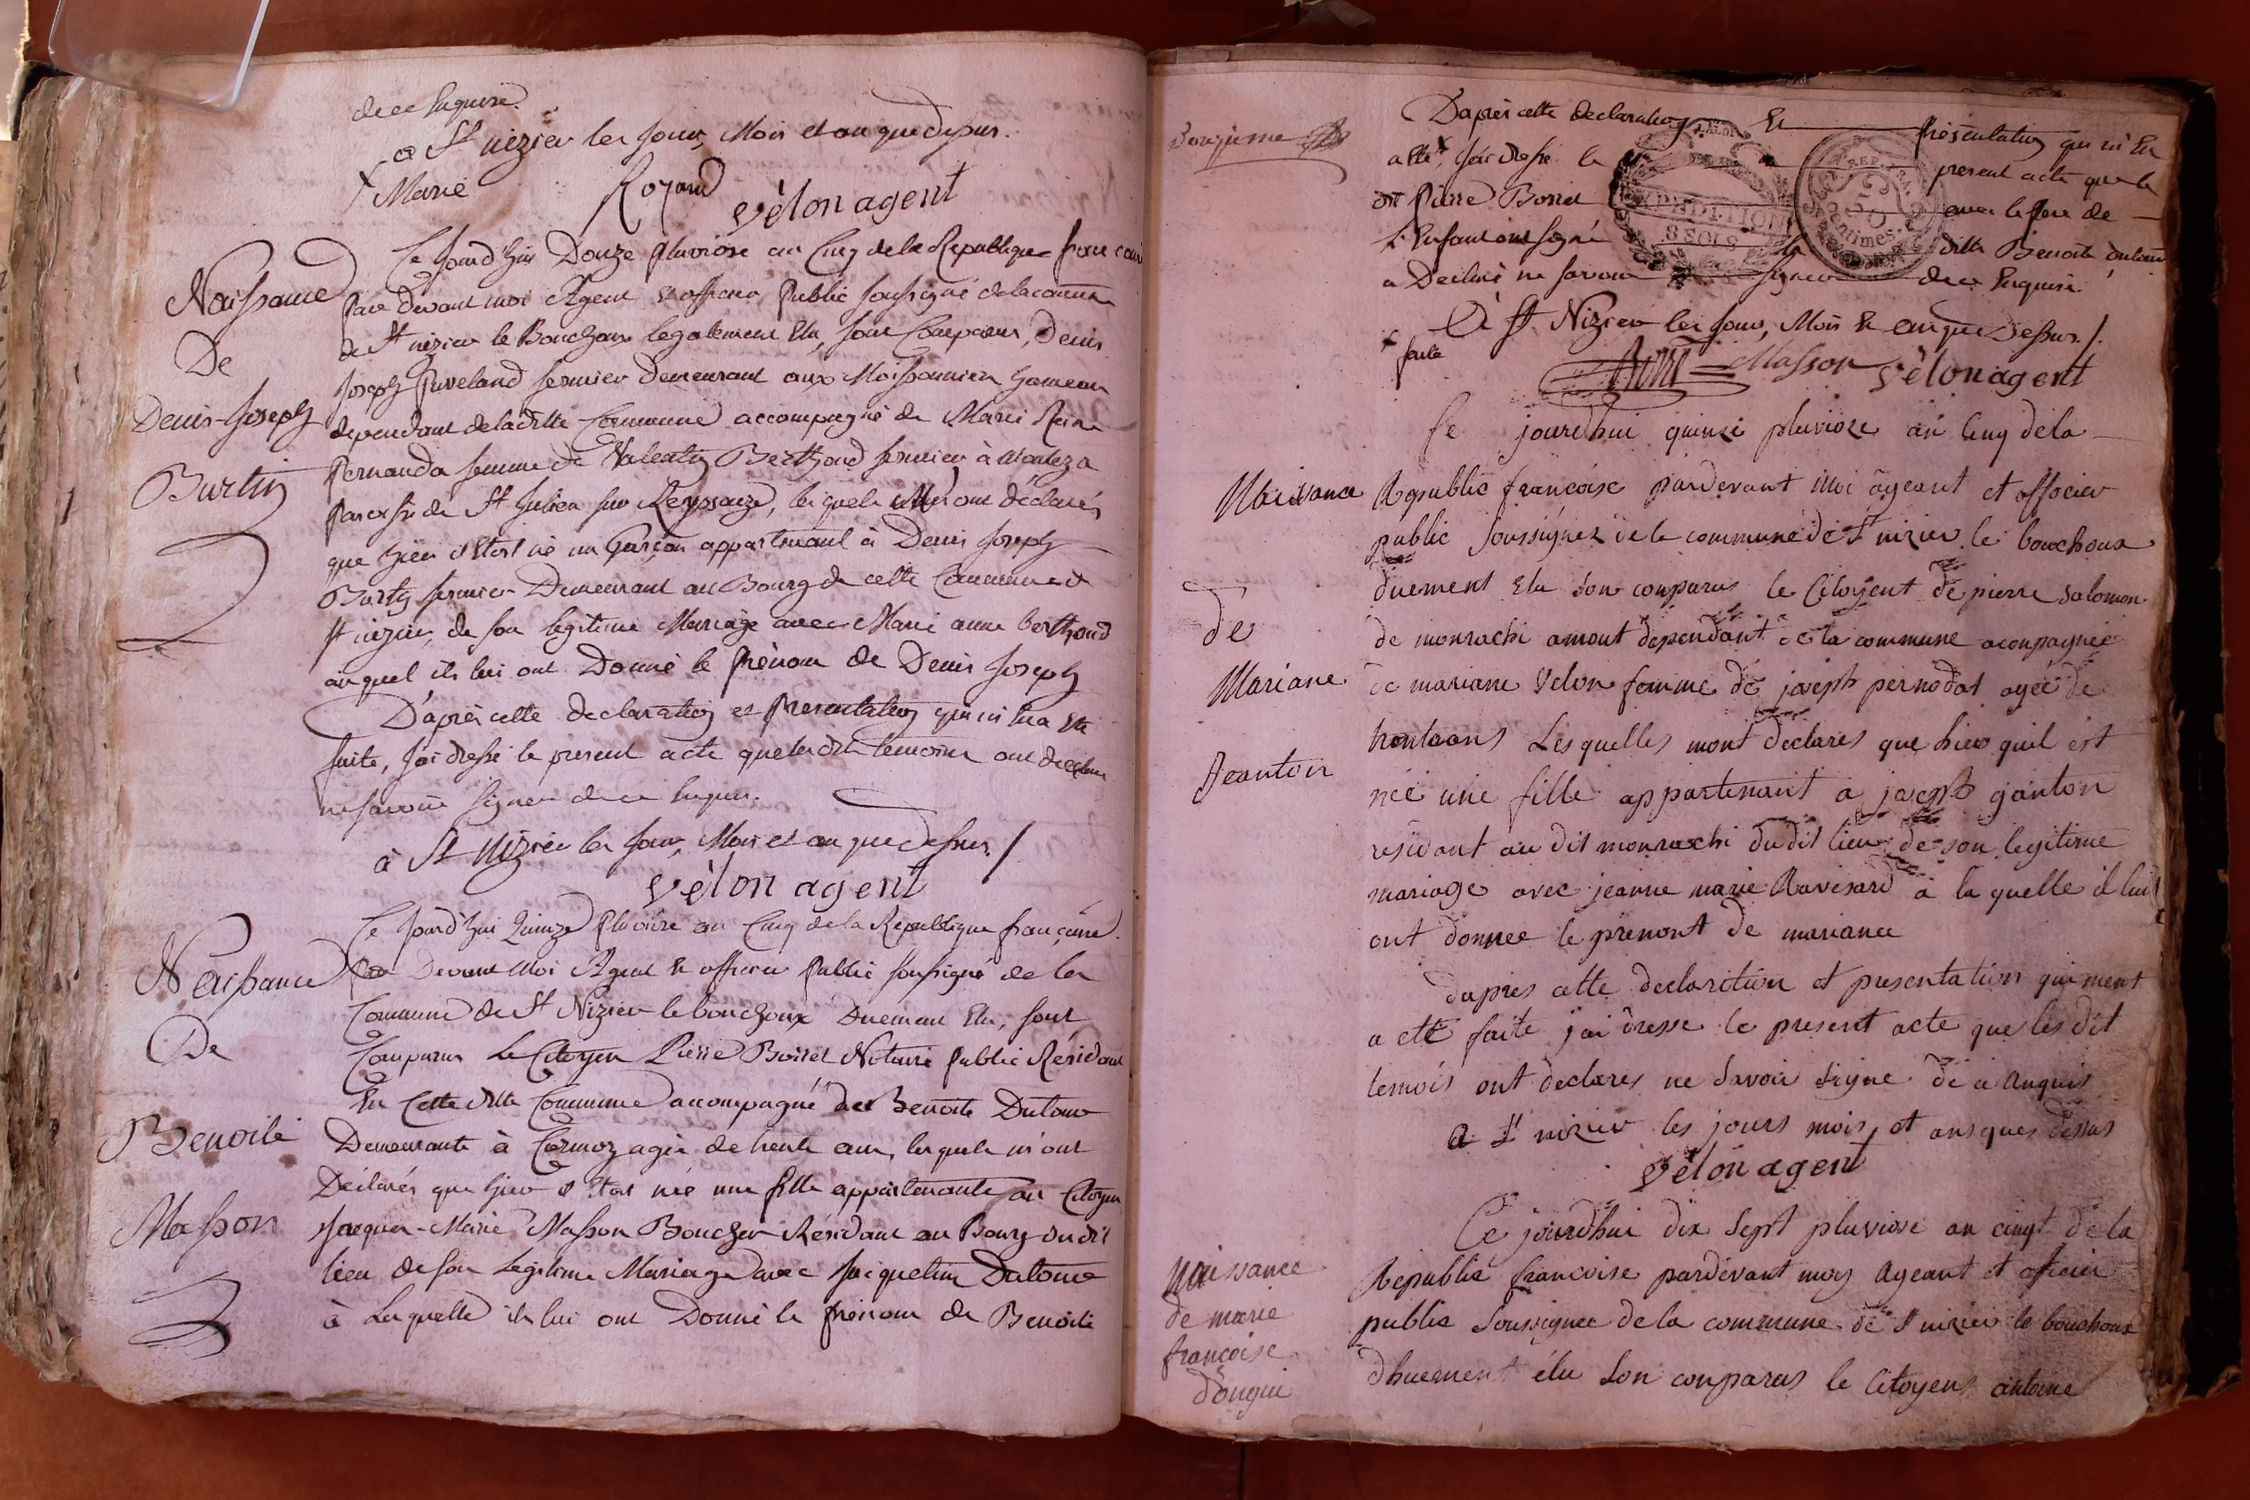 de ce Enquise.
à St nizier les Jour, Mois et an que dessus.
Marie Royard
vélon agent
Naissance
De
Denis-Joseph
Burtin
Ce Jourd'hui Douze Pluviose an Cinq de la Republique francaise
Par devant moi Agent & officier Public soussigné de la commune
de St nizier le Bouchoux legalement Elu, sont Comparus, Denis
Joseph Puveland fermier demeurant aux Moissonnier hameau
dependant de ladite Commune accompagné de Marie Reine
Pernauda femme de Valentin Berthoud fermier à Monteza
Paroisse de St Julien sur Reyssouze, lesquels M'ont déclarés
que hier s'etoit né un Garçon appartenant à Denis Joseph
Burtin fermier Demeurant au Bourg de cette Commune de
St nizier, de son legitime Mariage avec Marie anne berthoud
auquel ils lui ont Donné le Prénom de Denis Joseph
D'après cette declaration et Presentation qui m'en a été
faite, J'ai dressé le present acte que lesdits temoins ont declarés
ne savoir signer de ce Enquis.
à St Nizier les Jour, Mois et an que dessus /
vélon agent
Naissance
De
Benoite
Masson
Ce Jourd'hui Quinze Pluviose an Cinq de la Republique française.
Par Devant Moi Agent & officier Public soussigné de la
Commune de St Nizier le bouchoux Duement Elu, sont
Comparus Le Citoyen Pierre Borret Notaire Public Résidant
En Cette dite Commune accompagné de Benoite Dutour
Demeurante à Cormoz agée de trente ans, lesquels m'ont
Déclarés que hier s'Etoit née une fille appartenante au Citoyen
Jacques-Marie Masson Boucher Résidant au Bourg dudit
lieu de son Legitime Mariage avec Jacqueline Dutour
à Laquelle ils lui ont Donné le Prénom de Benoite
Donzieme
D'après cette declaration Et Présentation qui m'En
a été, J'ai dressé le present acte que le
dit Pierre Borret avec le Pere de
L'Enfant ont signé & ditte Benoite Dutour
a Declaré ne savoir signer de ce Enquise
EXPEDITION
8 SOLS
REP. FRA.
Centimes
à St Nizier les Jour, Mois & an que Dessus /.
x faite
Masson vélon agent
Ce jourdhui quinze pluviose an cinq de la
Naissance
de
Mariane
Jeanton
Republic francoise pardevant moi ageant et officier
public soussignez de la commune de St nizier le bouchoux
duement elu son conparus le Citoyent de pierre salomon
de monrachi amont dependant de la commune aconpagnée
de mariane Velon femme de joseph pernodat agée de
trentaans Les quelles mont declares que hier quil est
néé une fille appartenant a joseph janton
residant au dit monrachi dudit lieu de son legitime
mariage avec jeanne marie Ravisard a la quelle il lui
ont donnee le prenont de mariance
dapres cette declarition et presentation qui ment
a eté faite jai dresse le present acte que les dit
temois ont declares ne savoir signe de ci anquis
a St nizier les jours mois et ans ques dessus
vélon agent
Naissance
de marie
francoise
dongui
Ce jourdhui dix sept pluviose an cinqt de la
Republic francoise pardevant moy ageant et oficier
public soussignee de la commune de St nizier le bouchoux
dhuement élu son conparus le Citoyens antoine